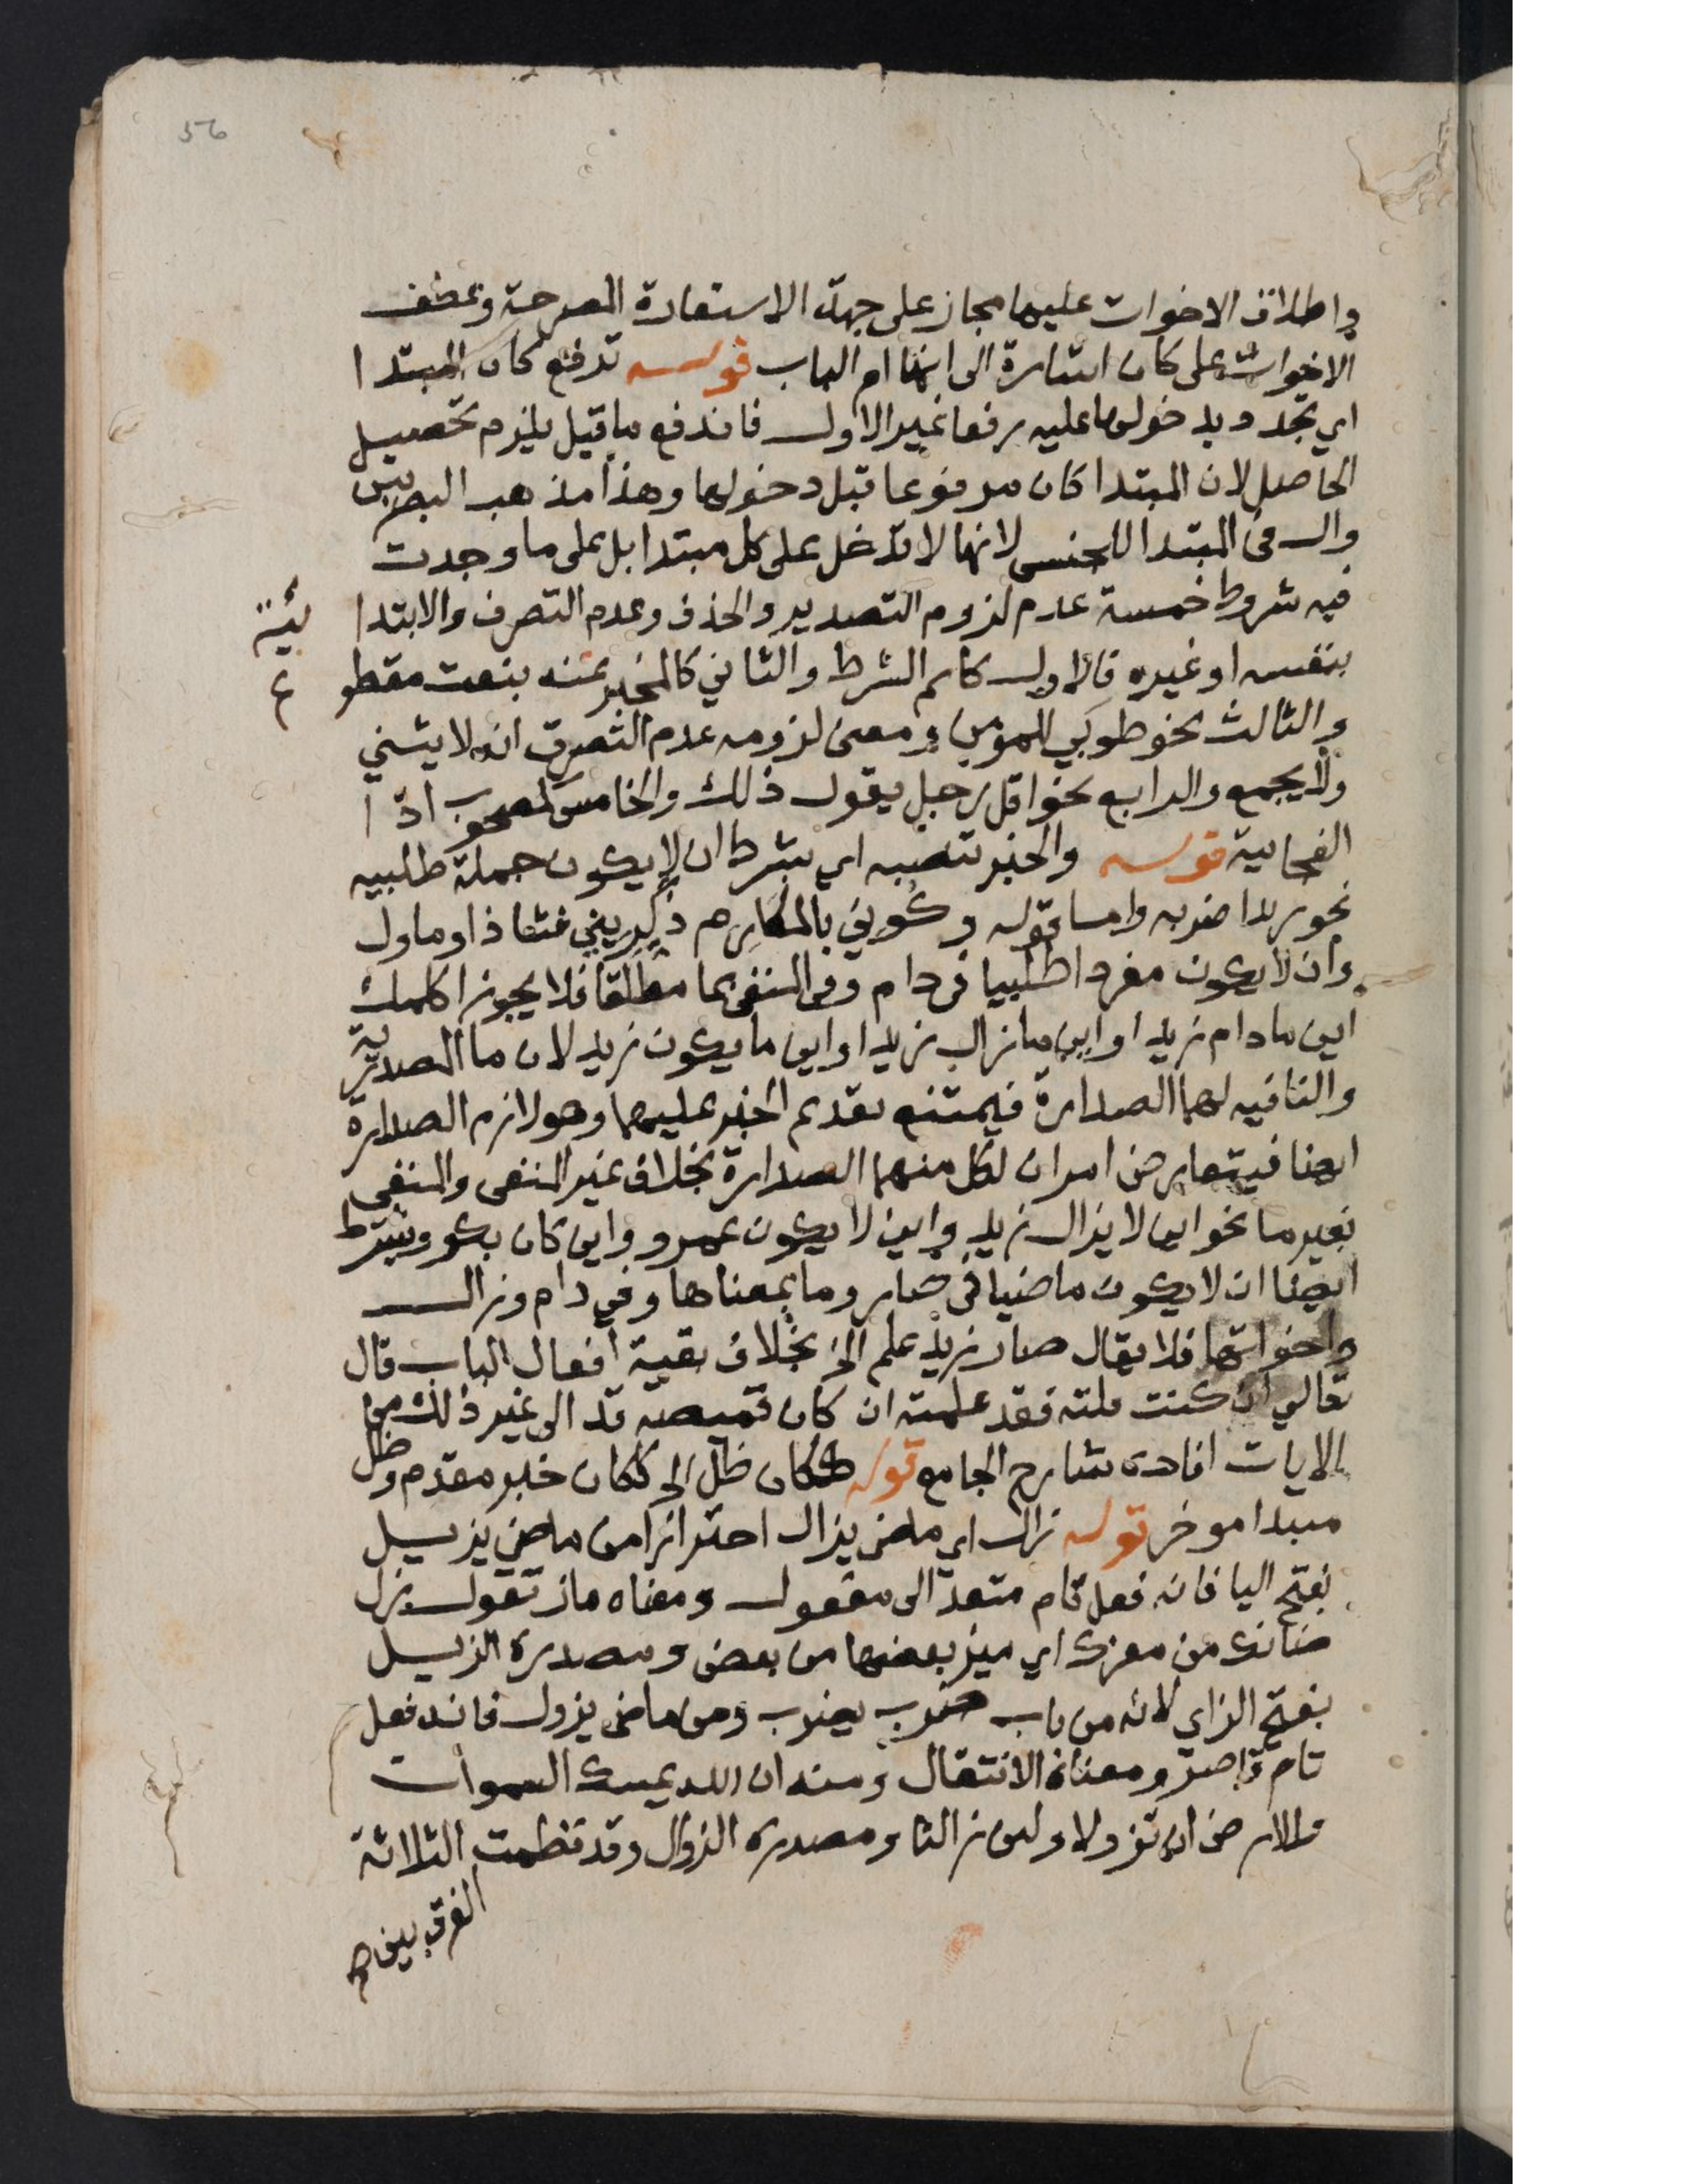 56
واطلاق الاخوات عليها مجاز على جهة الاستعارة المصرحة وعطف
الاخوات على كان اشارة الى انها ام الباب قوله ترفع كان المبتدا
اي تجدد بدخولها عليه رفعا غير الاول فاندفع ما قيل يلزم تحصيل
الحاصل لان المبتدا كان مرفوعا قبل دخولها وهذا مذهب البصريين
وال في المبتدا للجنس لانها لا تدخل على كل مبتدا بل على ما وجدت
فيه شروط خمسة عدم لزوم التصدير والحذف وعدم التصرف والابتدا
ئية
بنفسه او غيره فالاول كاسم الشرط والثاني كالمخبر عنه بنعت مقطو
ع
والثالث نحو طوبي للمومن ومعنى لزومه عدم التصرف انه لا يثني
ولا يجمع والرابع نحو اقل رجل يقول ذلك والخامس مصحوب اذا
الفجائية قوله والخبر تنصبه اي بشرط ان لا يكون جملة طلبيه
نحو زيدا ضربه واما قوله وكوني بالمكارم ذكريني فشاذ او ماول
وان لا يكون مفردا طلبيا في دام وفي المنفي بما مطلقا فلا يجوز اكلمك
اين ما دام زيد او اين ما زال زيد او اين ما يكون زيد لان ما المصدرية
والنافيه لهما الصدارة فيمتنع تقديم الخبر عليهما وهو لازم الصدارة
ايضا فيتعارض امران لكل منهما الصدارة بخلاف غير المنفي والمنفي
بغير ما نحو اين لا يزال زيد واين لا يكون عمرو واين كان بكر ويشترط
ايضا ان لا يكون ماضيا في صار وما بمعناها وفي دام وزال
واخواتها فلا يقال صار زيد علم الخ بخلاف بقية افعال الباب قال
تعالي ان كنت قلته فقد علمته ان كان قميصه قد الى غير ذلك من
الايات افاده شارح الجامع قوله ككان ظل الى ككان خبر مقدم وظل
مبتدا موخر قوله زال اي ماضي يزال احترازا من ماضي يزيل
بفتح اليا فانه فعل تام متعد الى مفعول ومعناه ماز تقول زل
ضانك من معزك اي ميز بعضها من بعض ومصدره الزيل
بفتح الزاي لانه من باب ضرب يضرب ومن ماضي يزول فانه فعل
تام قاصر ومعناه الانتقال ومنه ان الله يمسك السموات
والارض ان تزولا ولين زالتا ومصدره الزوال وقد نظمت الثلاثة
الفرق بينهم